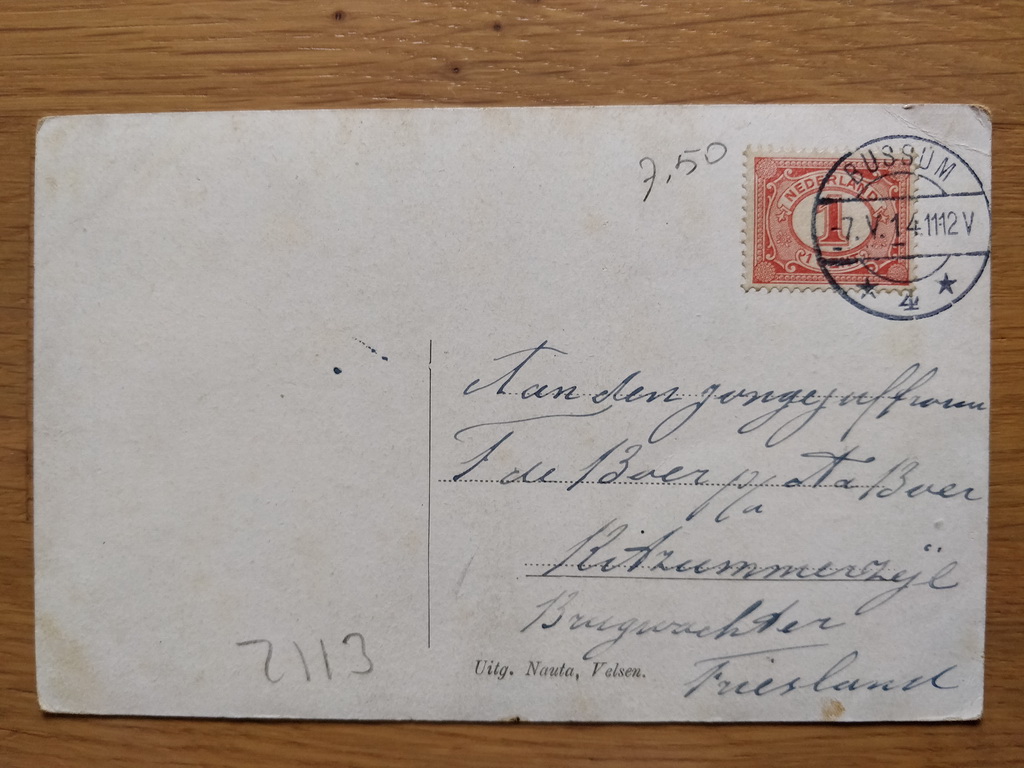 7,50
NEDERLAND
1
BUSSUM
-7.V.14.11-12V
4
Aan den jongejuffrouw
F de Boer p/a Aa Boer
Kitzummerzijl
Brugwachter
Friesland
Uitg. Nauta, Velsen.
2113